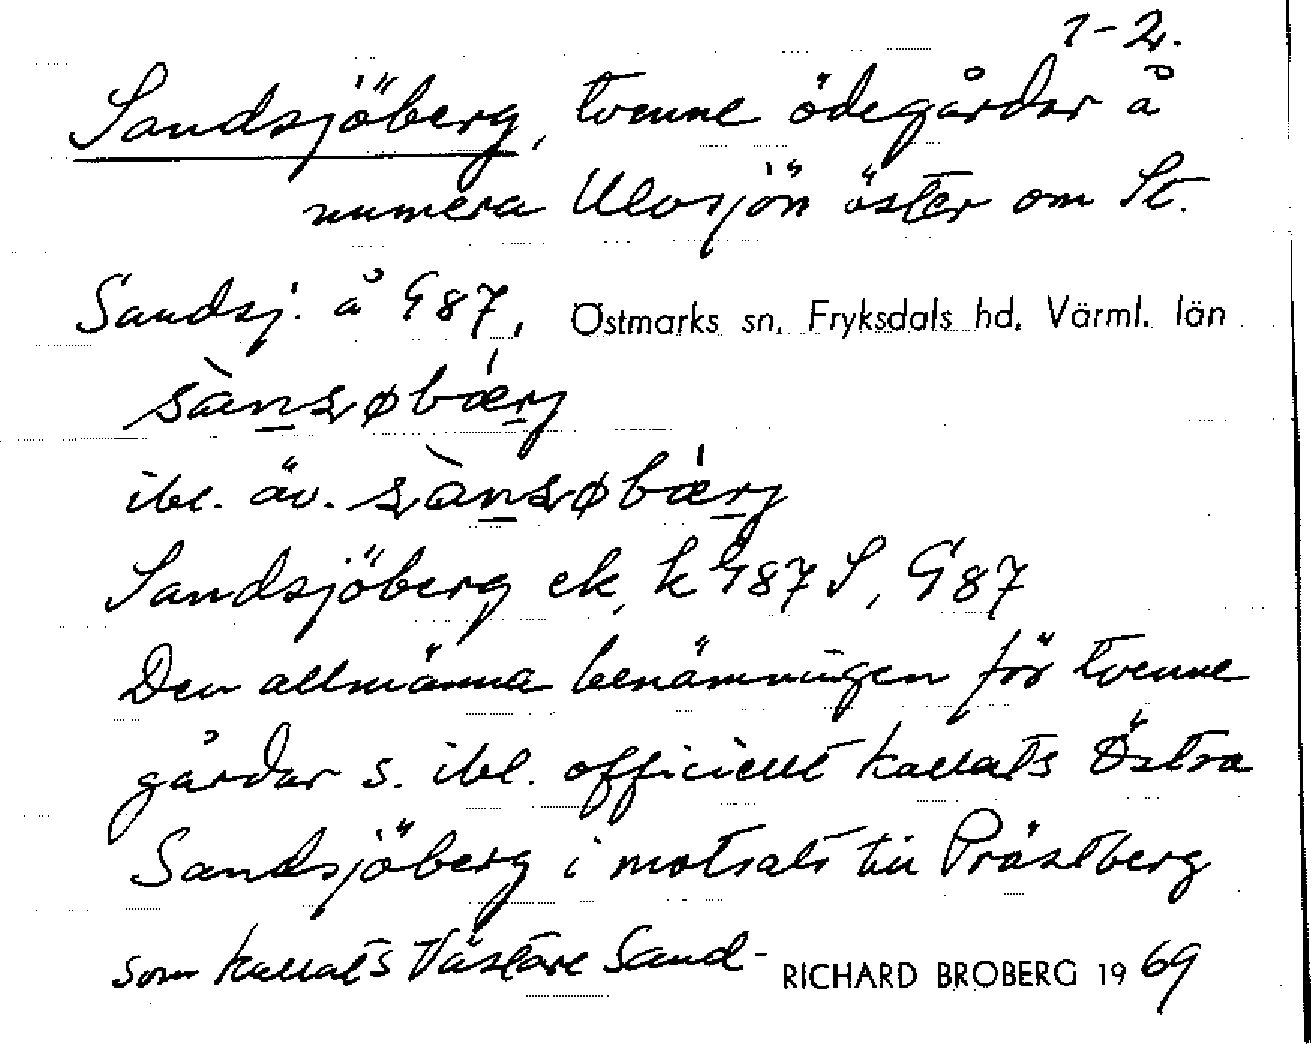 1-2.
Sandsjöberg, tvenne ödegårdar å
numera Ulvsjön öster om St.
Sandsj. å G87, Östmarks sn. Fryksdals hd. Värml. län
sànsøbærj
ibl. äv. sànsøbærj
Sandsjöberg ek, k G87 S, G87
Den allmänna benämningen för tvenne
gårdar s. ibl. officiellt kallats Östra
Sandsjöberg i motsats till Prästberg
som kallats Västare Sand-
RICHARD BROBERG 1969